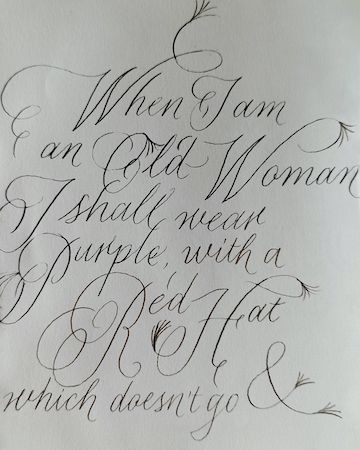 When I am
an Old Woman
I shall wear
Purple, with a
Red Hat
which doesn't go &